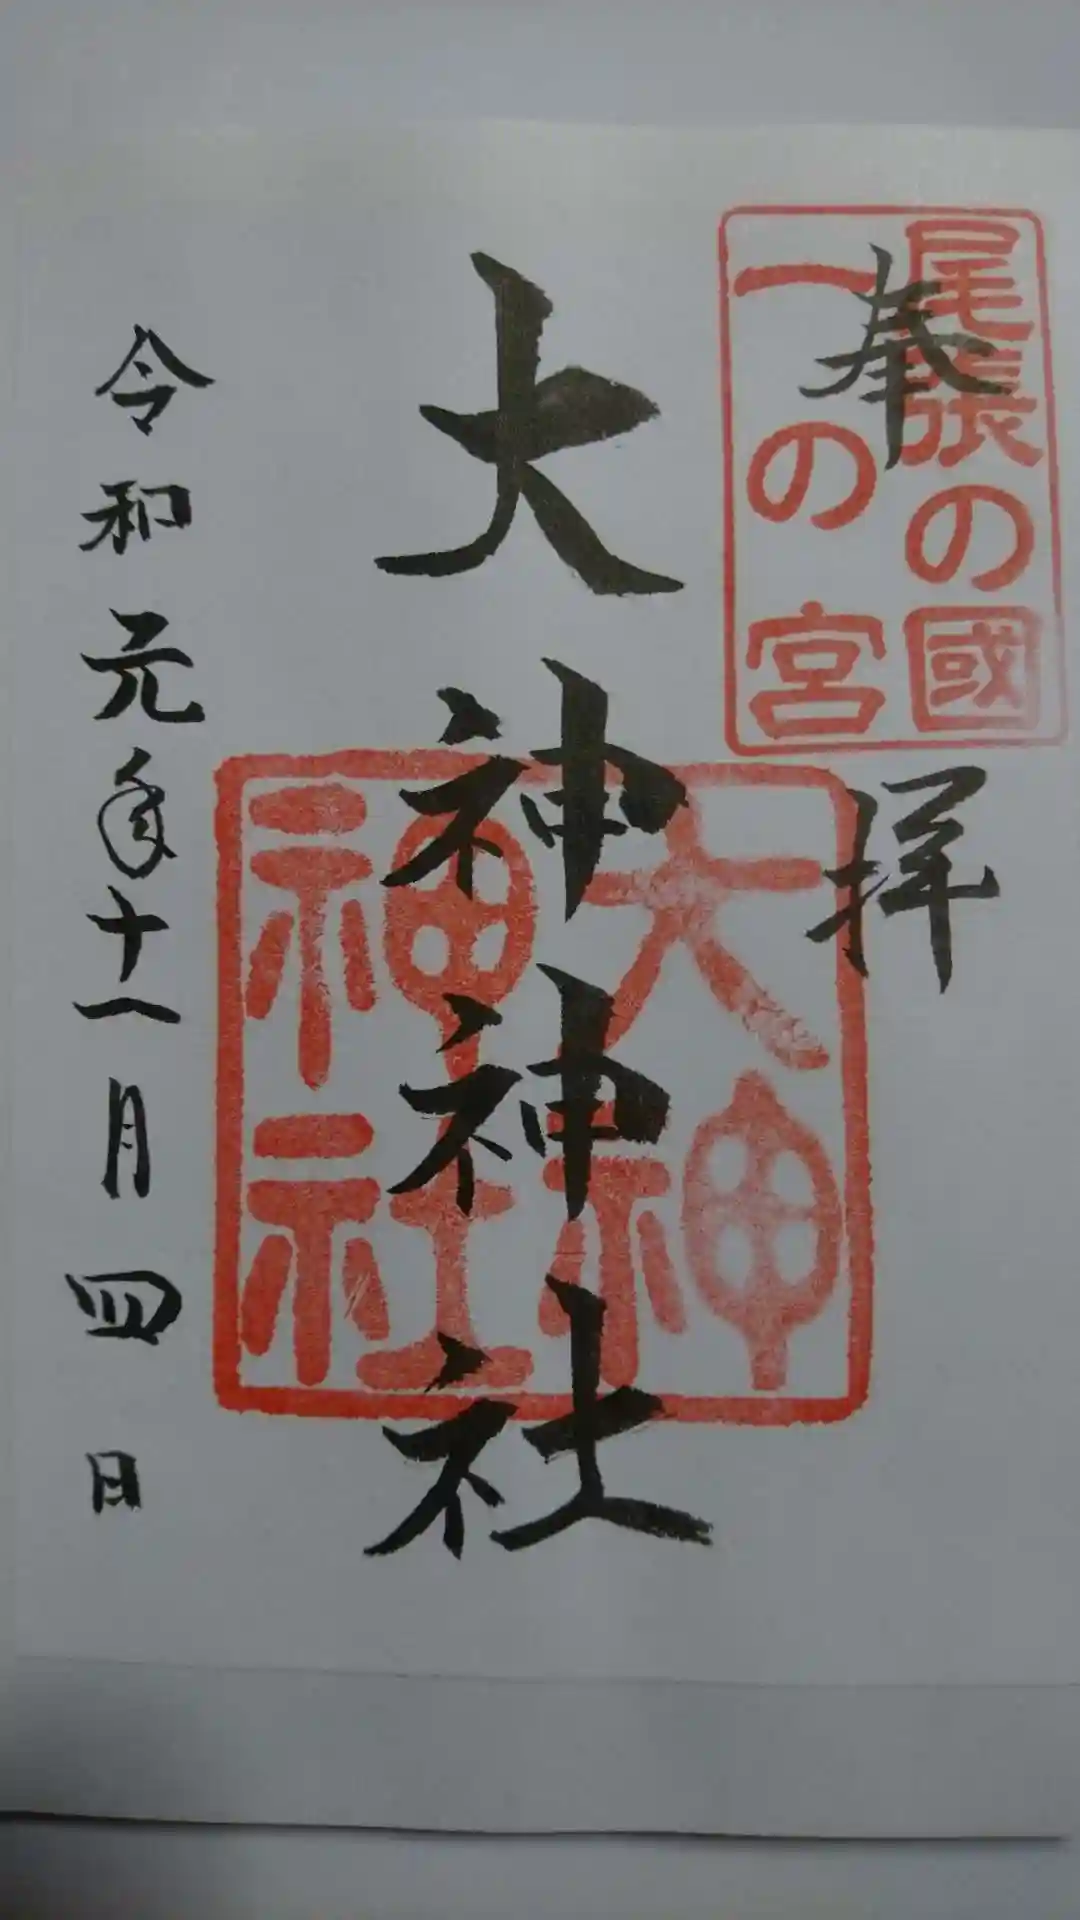 尾張の國
一の宮
奉拝
大神神社
大神
神社
令和元年十一月四日